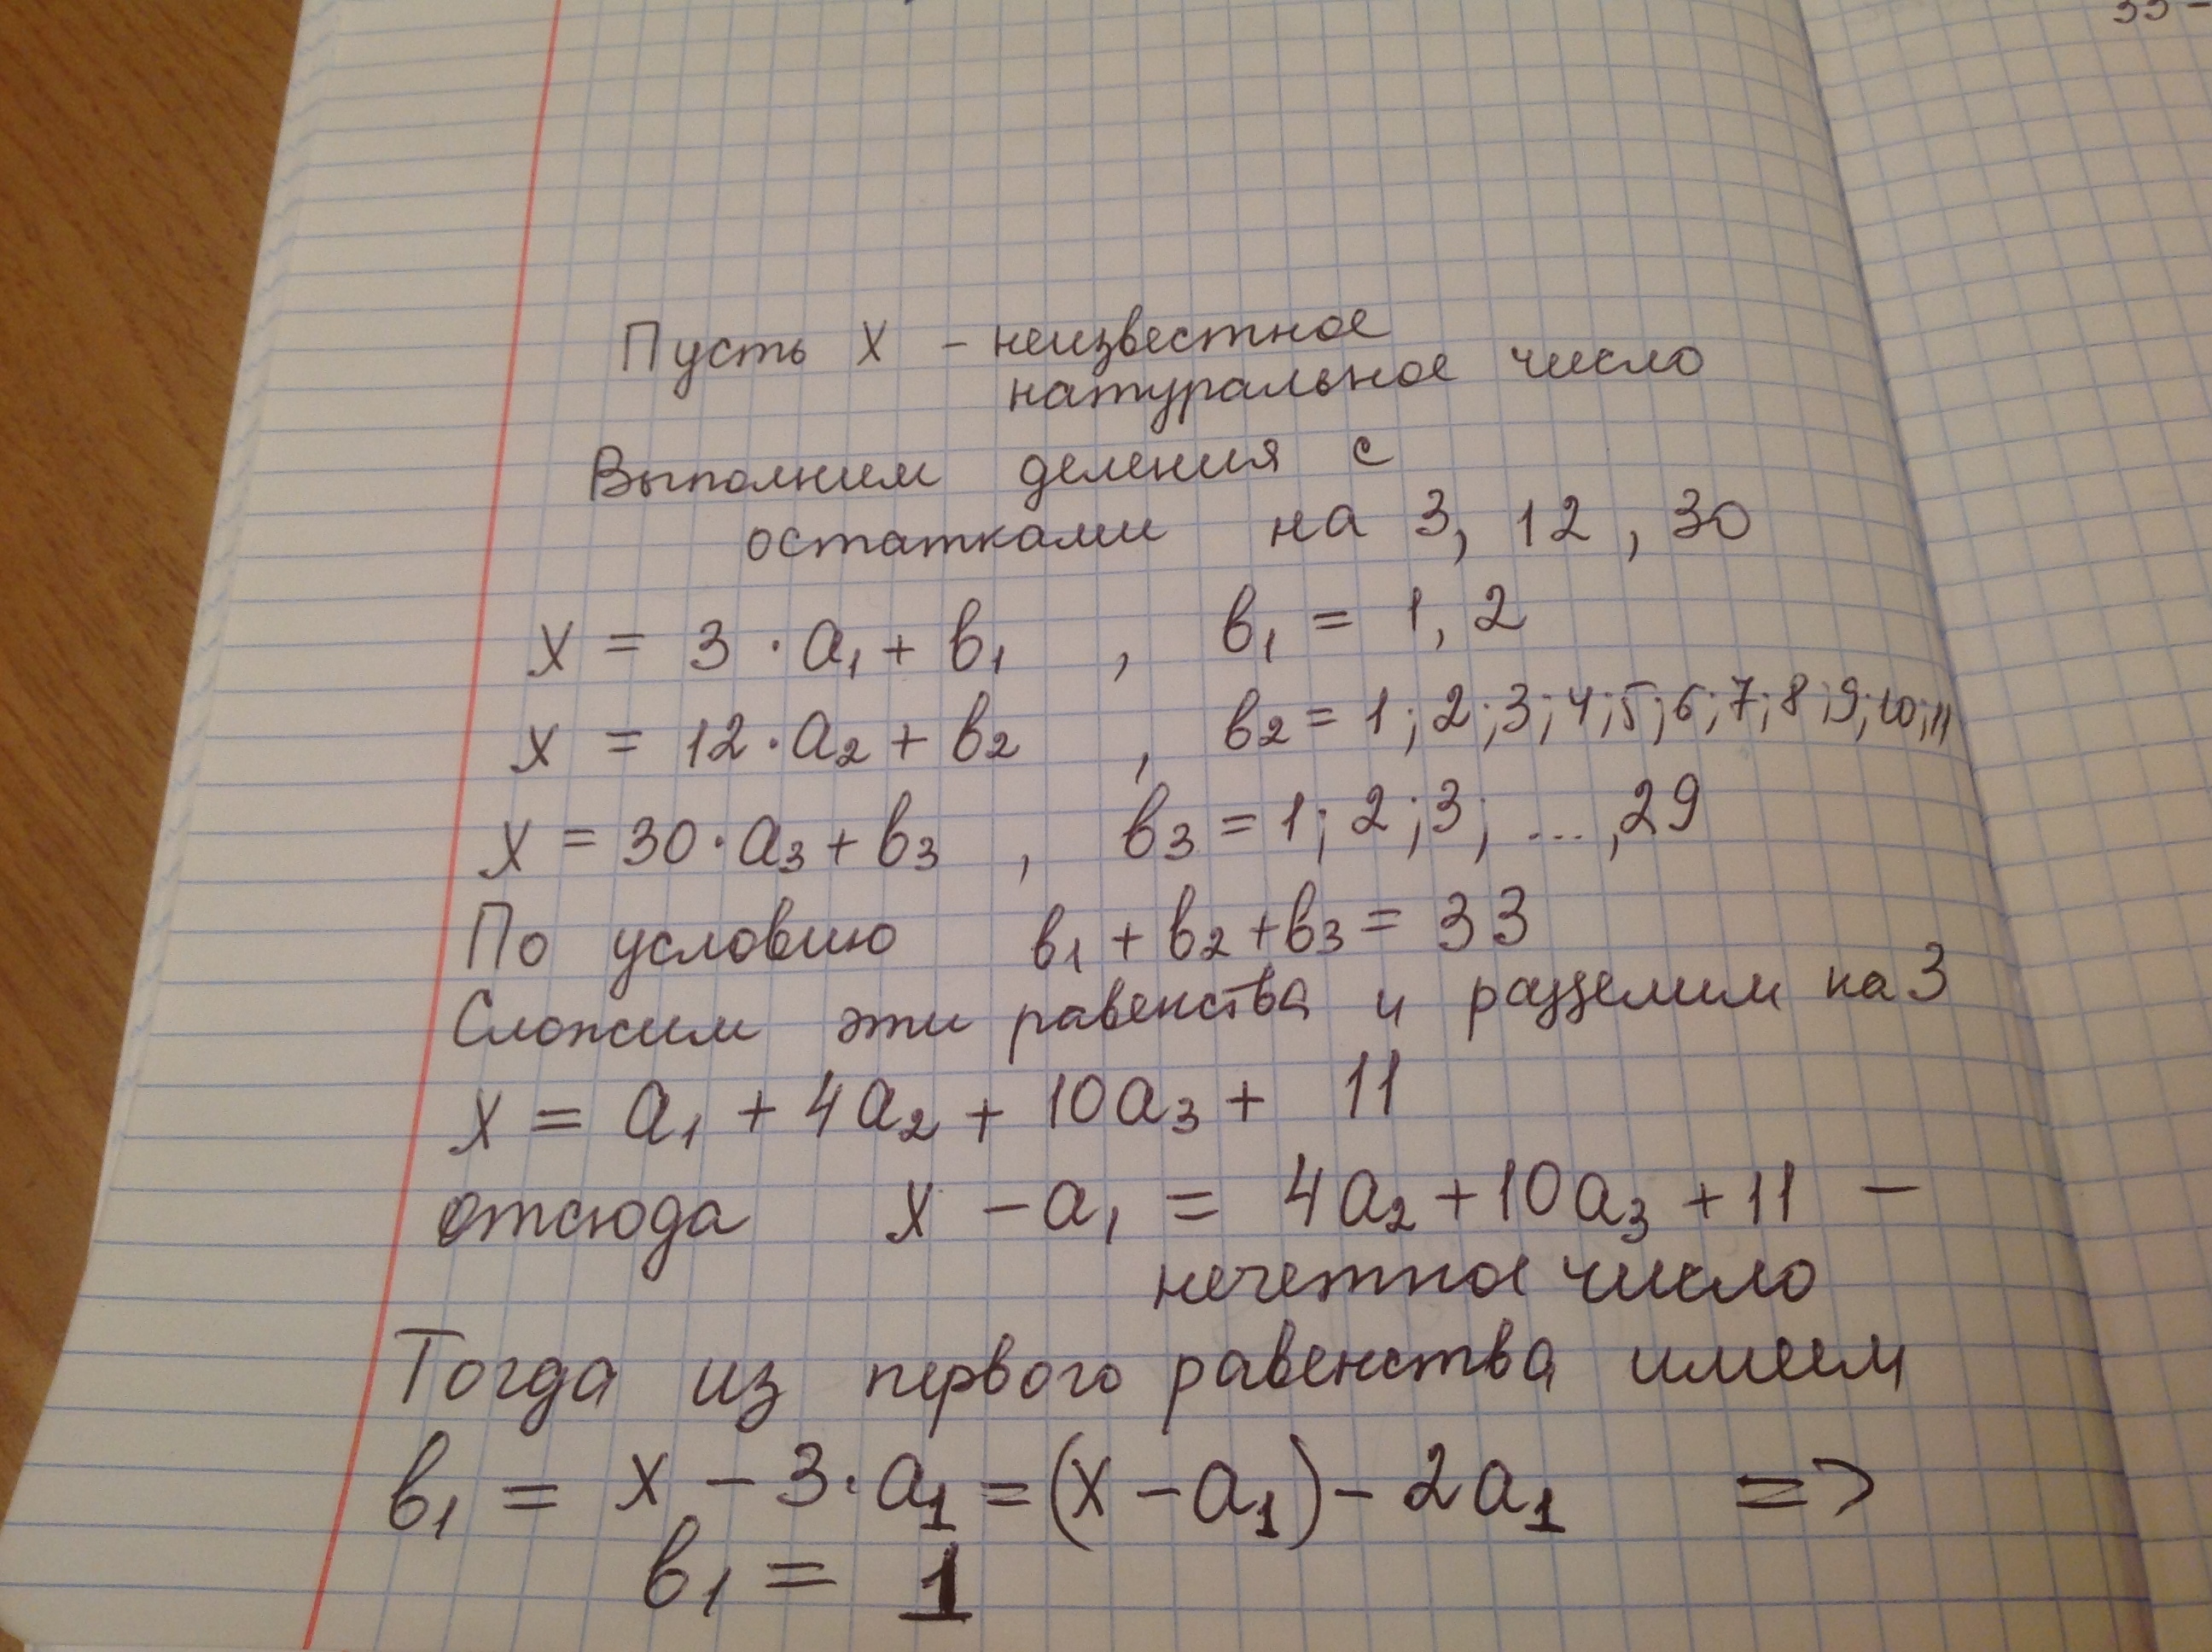 33 -
Пусть х - неизвестное
натуральное число
Выполним деления с
остатками на 3, 12, 30
х = 3 · а₁ + в₁ , в₁ = 1, 2
х = 12 · а₂ + в₂ , в₂ = 1; 2; 3; 4; 5; 6; 7; 8; 9; 10; 11
х = 30 · а₃ + в₃ , в₃ = 1; 2; 3; ..., 29
По условию в₁ + в₂ + в₃ = 33
Сложим эти равенства и разделим на 3
х = а₁ + 4а₂ + 10а₃ + 11
отсюда х - а₁ = 4а₂ + 10а₃ + 11 -
нечетное число
Тогда из первого равенства имеем
в₁ = х - 3 · а₁ = (х - а₁) - 2а₁ =>
в₁ = 1